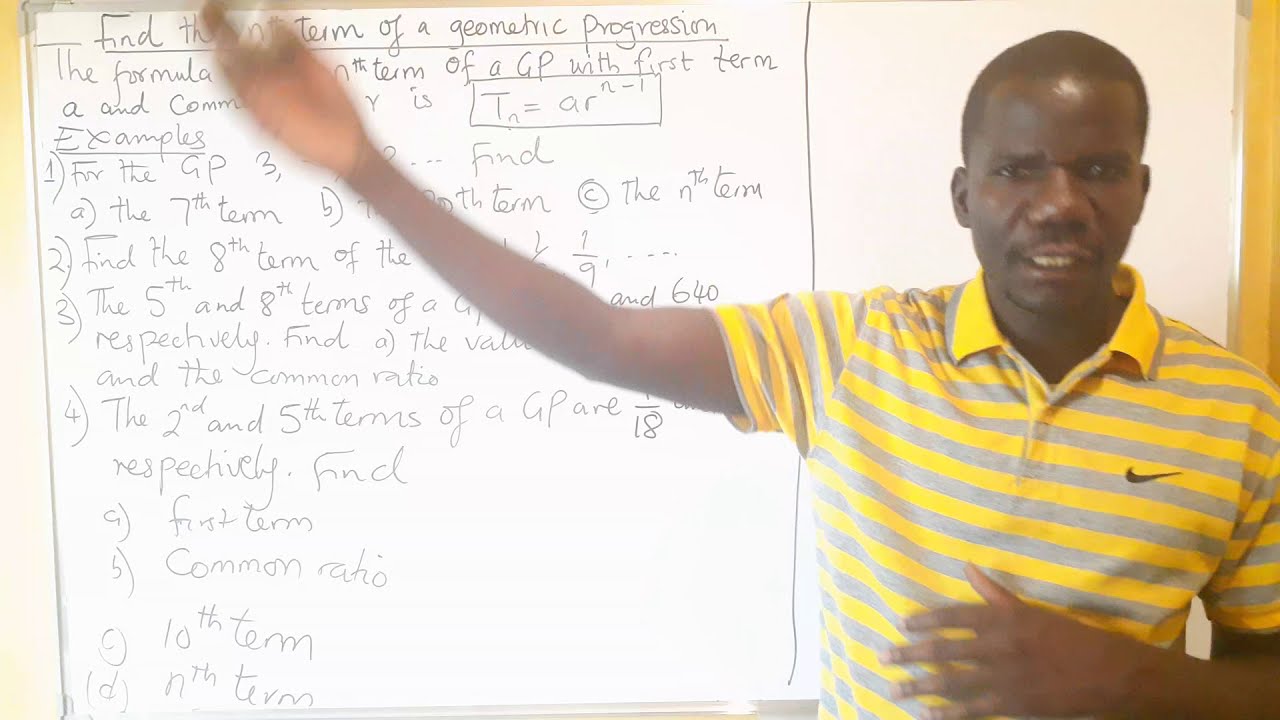 Find th nth term of a geometric progression
The formula nth term of a GP with first term
a and Comm r is Tn = ar^n-1
Examples
1) For the GP 3, 2 ... Find
a) the 7th term b) th term © The nth term
2) Find the 8th term of the 1/9, ....
3) The 5th and 8th terms of a G and 640
respectively. Find a) the val
and the common ratio
4) The 2nd and 5th terms of a GP are 18
respectively. Find
a) first term
b) Common ratio
c) 10th term
(d) nth term